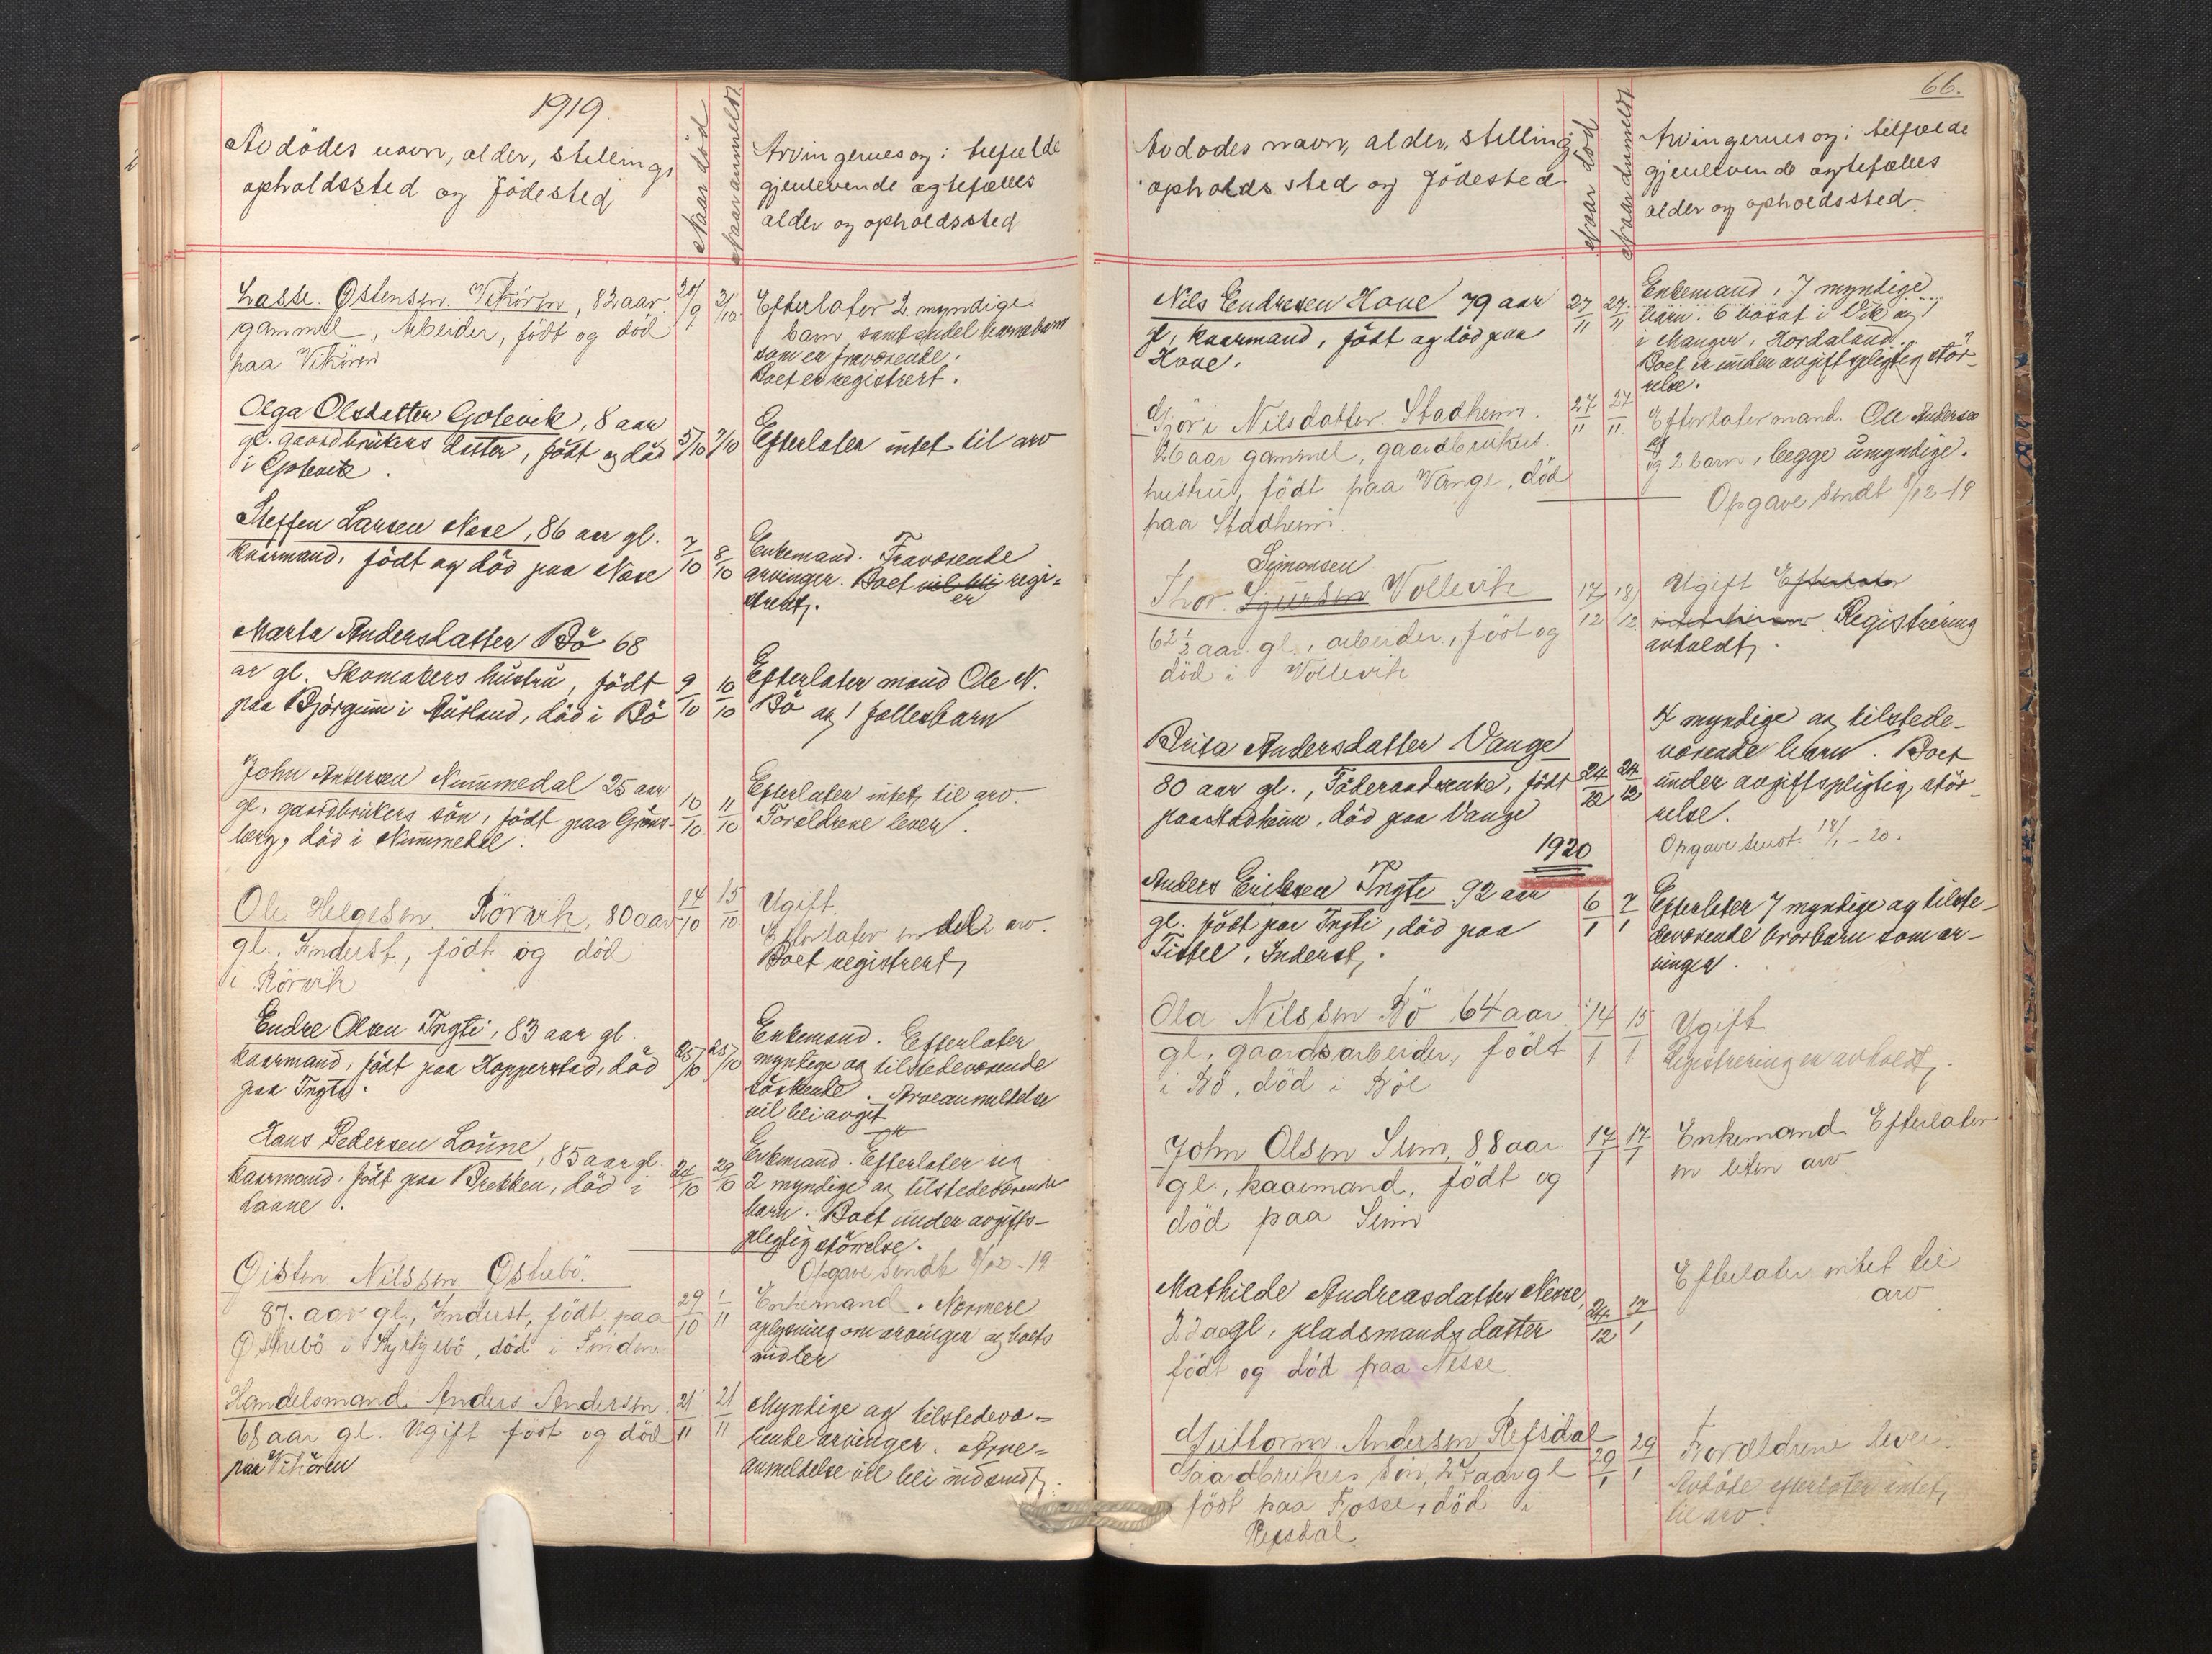 1919.
Avdödes navn, alder, stilling,
opholdssted og födested
Naar död
Naar anmeldt
Arvingernes og i tilfælde
gjenlevende ægtefælles
alder og opholdssted
Lasse Østensen Vikören, 82 aar
gammel, Arbeider, födt og död
paa Vikören
Efterlater 2 myndige
barn samt endel barnebarn
som er fraværende.
Boet er registrert.
Olga Olsdatter Gotevik, 8 aar
gl. gaardbrukers datter, födt og död
i Gotevik.
5/10 7/10
Efterlater intet til arv
Steffen Larsen Nese, 86 aar gl.
kaarmand, födt og död paa Nese
7/10 8/10
Enkemand. Fraværende
arvinger. Boet vil bli regi=
er
strert.
Marta Andersdatter Bö 68
ar gl. Skomakers hustru, födt
paa Bjørgum i Aurland, död i Bö
9/10 10/10
Efterlater mand Ole N.
Bö og 1 fellesbarn
John Andersen Nummedal 25 aar
gl, gaardbrukers sön, födt paa Gröns-
berg, död i Nummedal.
10/10 11/10
Efterlater intet til arv.
Foreldrene lever.
Ole Helgesen Rörvik, 80 aar
gl., Inderst, födt og död
i Rörvik
14/10 15/10
Ugift.
Efterlater en del i arv.
Boet registrert,
Endre Olsen Tryti, 83 aar gl.
kaarmand, födt paa Hopperstad, död
paa Tryti.
25/10 25/10
Enkemand. Efterlater
myndige og tilstedeværende
söskende. Arveanmeldelse
vil bli avgit
Hans Pedersen Lonne, 85 aar gl.
kaarmand, födt paa Brekken, död i
Lonne.
24/10 29/10
Enkemand. Efterlater sig
2 myndige og tilstedeværende
barn. Boet under avgifts-
pligtig störrelse.
Opgave sendt 8/12-19
Gisten Nilssen Østrebö.
87. aar gl., Inderst, födt paa
Østrebö i Kyrkjebö, död i Finden
29/10 1/11
Enkemand. Nærmere
oplysning om arvinger og boets
midler
Handelsmand Anders Andersen.
68 aar gl. Ugift födt og död
paa Vikören
21/11 21/11
Myndige og tilstedevæ-
rende arvinger. Arve=
anmeldelse vil bli indsendt.
66.
Avdödes navn, alder, stilling
opholdssted og födested
Naar död
Naar anmeldt
Arvingernes og i tilfælde
gjenlevende ægtefælles
alder og opholdssted.
Nils Endresen Hove 79 aar
gl, kaarmand, födt og död paa
Hove.
27/11 27/11
Enkemand, 7 myndige
barn. 6 bosat i Vik og 1
i Manger, Hordaland.
Boet er under avgiftspligtig stör-
relse.
Sjöri Nilsdatter Stadheim.
26 aar gammel, gaardbrukers
hustru, födt paa Vange, död
paa Stadheim.
27/11 27/11
Efterlater mand Ole Andersen
og 2 barn, begge umyndige.
Opgave sendt 8/12-19
Simonsen
Thor Sjursen Vollevik
62 1/2 aar gl., arbeider, födt og
död i Vollevik
17/12 18/12
Ugift Efterlater
Registrering
avholdt.
Brita Andersdatter Vange
80 aar gl., Föderaadsenke, födt
paa Stadheim, död paa Vange
24/12 24/12
4 myndige og tilstede-
værende barn. Boet
under avgiftspligtig stör-
relse.
Opgave sendt 18/1-20.
1920
Anders Eriksen Tryti 92 aar
gl. födt paa Tryti, död paa
Tistel, Inderst.
6/1 7/1
Efterlater 7 myndige og tilste-
deværende brorbarn som ar-
vinger.
Ola Nilssen Bö 64 aar
gl, gaardsarbeider, födt
i Bö, död i Böe
14/1 15/1
Ugift.
Registrering er avholdt.
John Olsen Seim, 88 aar
gl., kaarmand, födt og
död paa Seim
17/1 17/1
Enkemand Efterlater
en liten arv
Mathilde Andreasdatter Nesse,
aar gl, pladsmands datter
födt og död paa Nesse
24/12 17/1
Efterlater intet til
arv
Guttorm Andersen Refsdal
Gaardbrukers sön, 27 aar gl
födt paa Fosse, död i
Refsdal
29/1 29/1
Forældrene lever.
Avdöde efterlater intet
til arv.